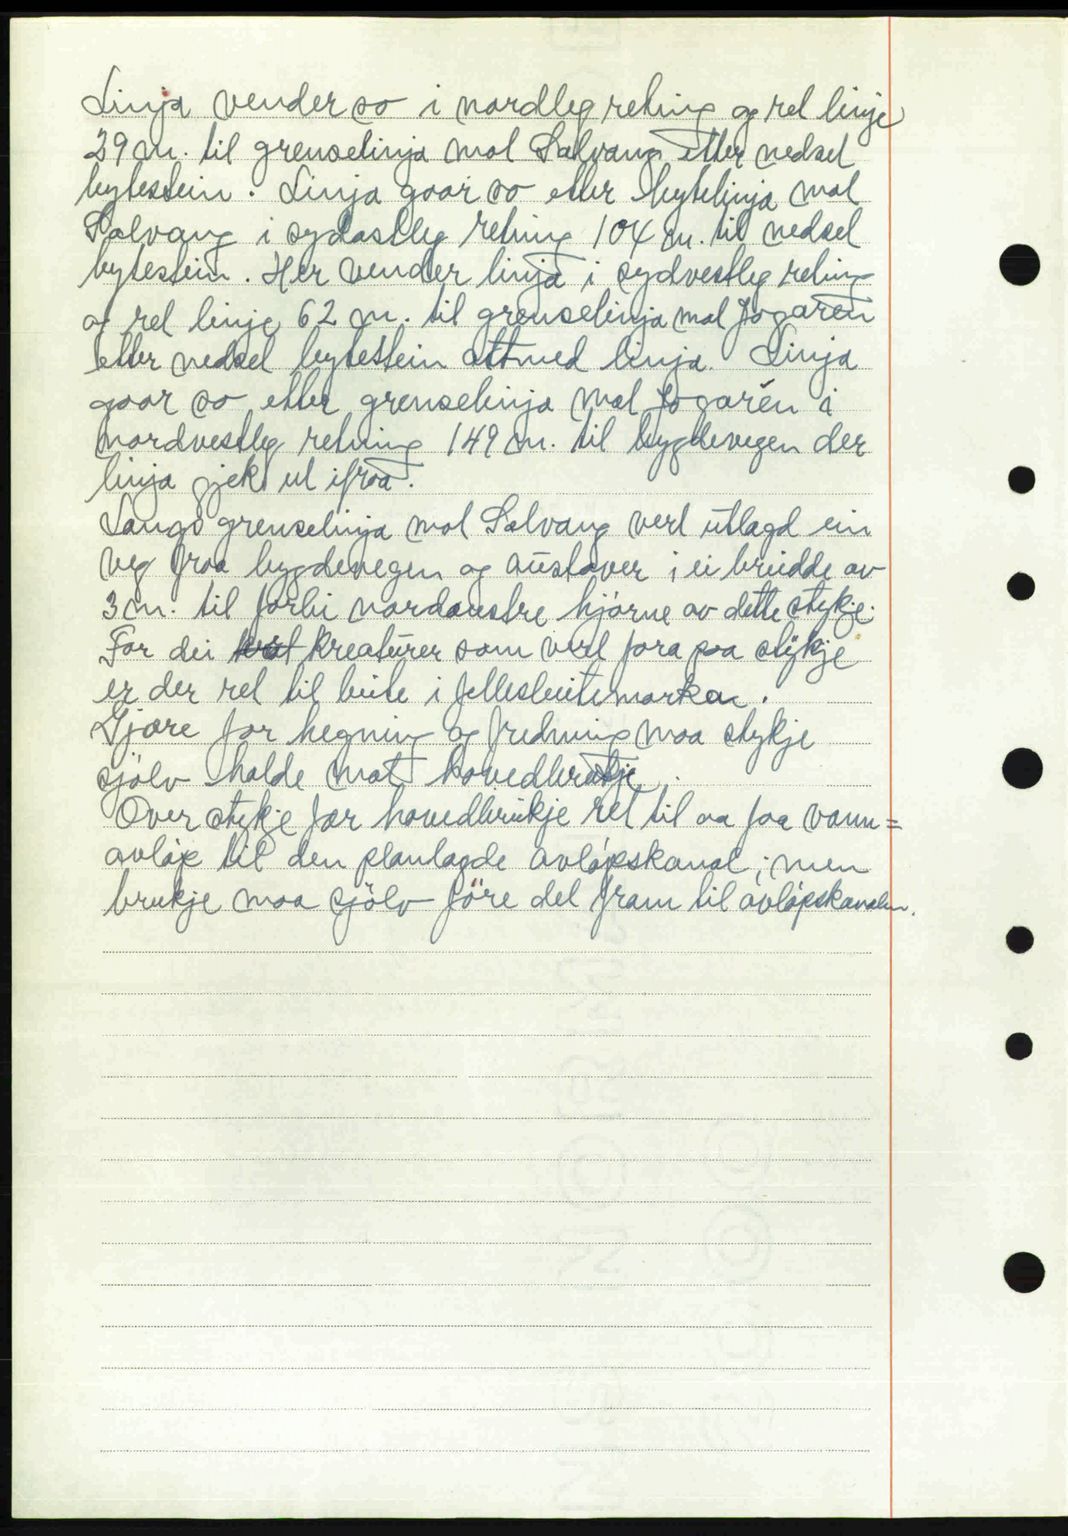 Linja vender so i nordleg retning og ret linje
29 m. til grenselinja mot Solvang etter nedset
bytestein. Linja gaar so etter bytelinja mot
Solvang i sydostleg retning 104 m. til nedset
bytestein. Her vender linja i sydvestleg retning
og ret linje 62 m. til grenselinja mot Jogaren
etter nedset bytestein attmed linja. Linja
gaar so etter grenselinja mot Jogaren i
nordvestleg retning 149 m. til bygdevegen der
linja gjek ut ifraa.
Langs grenselinja mot Solvang vert utlagd ein
veg fraa bygdevegen og austover i ei breidde av
3 m. til forbi nordaustre hjörne av dette stykje.
For dei kreaturer som vert fora paa stykje
er der ret til beite i fellesbeitemarken.
Gjære for hegning og fredning maa stykje
sjölv halde mot hovedbrukje.
Over stykje fær hovedbrukje ret til aa faa vann=
avlöp til den planlagde avlöpskanal; men
brukje maa sjölv före det fram til avlöpskanalen.